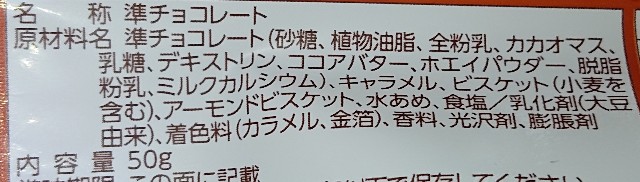 名 称 準チョコレート
原材料名 準チョコレート(砂糖、植物油脂、全粉乳、カカオマス、
乳糖、デキストリン、ココアバター、ホエイパウダー、脱脂
粉乳、ミルクカルシウム)、キャラメル、ビスケット(小麦を
含む)、アーモンドビスケット、水あめ、食塩/乳化剤(大豆
由来)、着色料(カラメル、金箔)、香料、光沢剤、膨脹剤
内 容 量 50g
この面に記載
保存してください